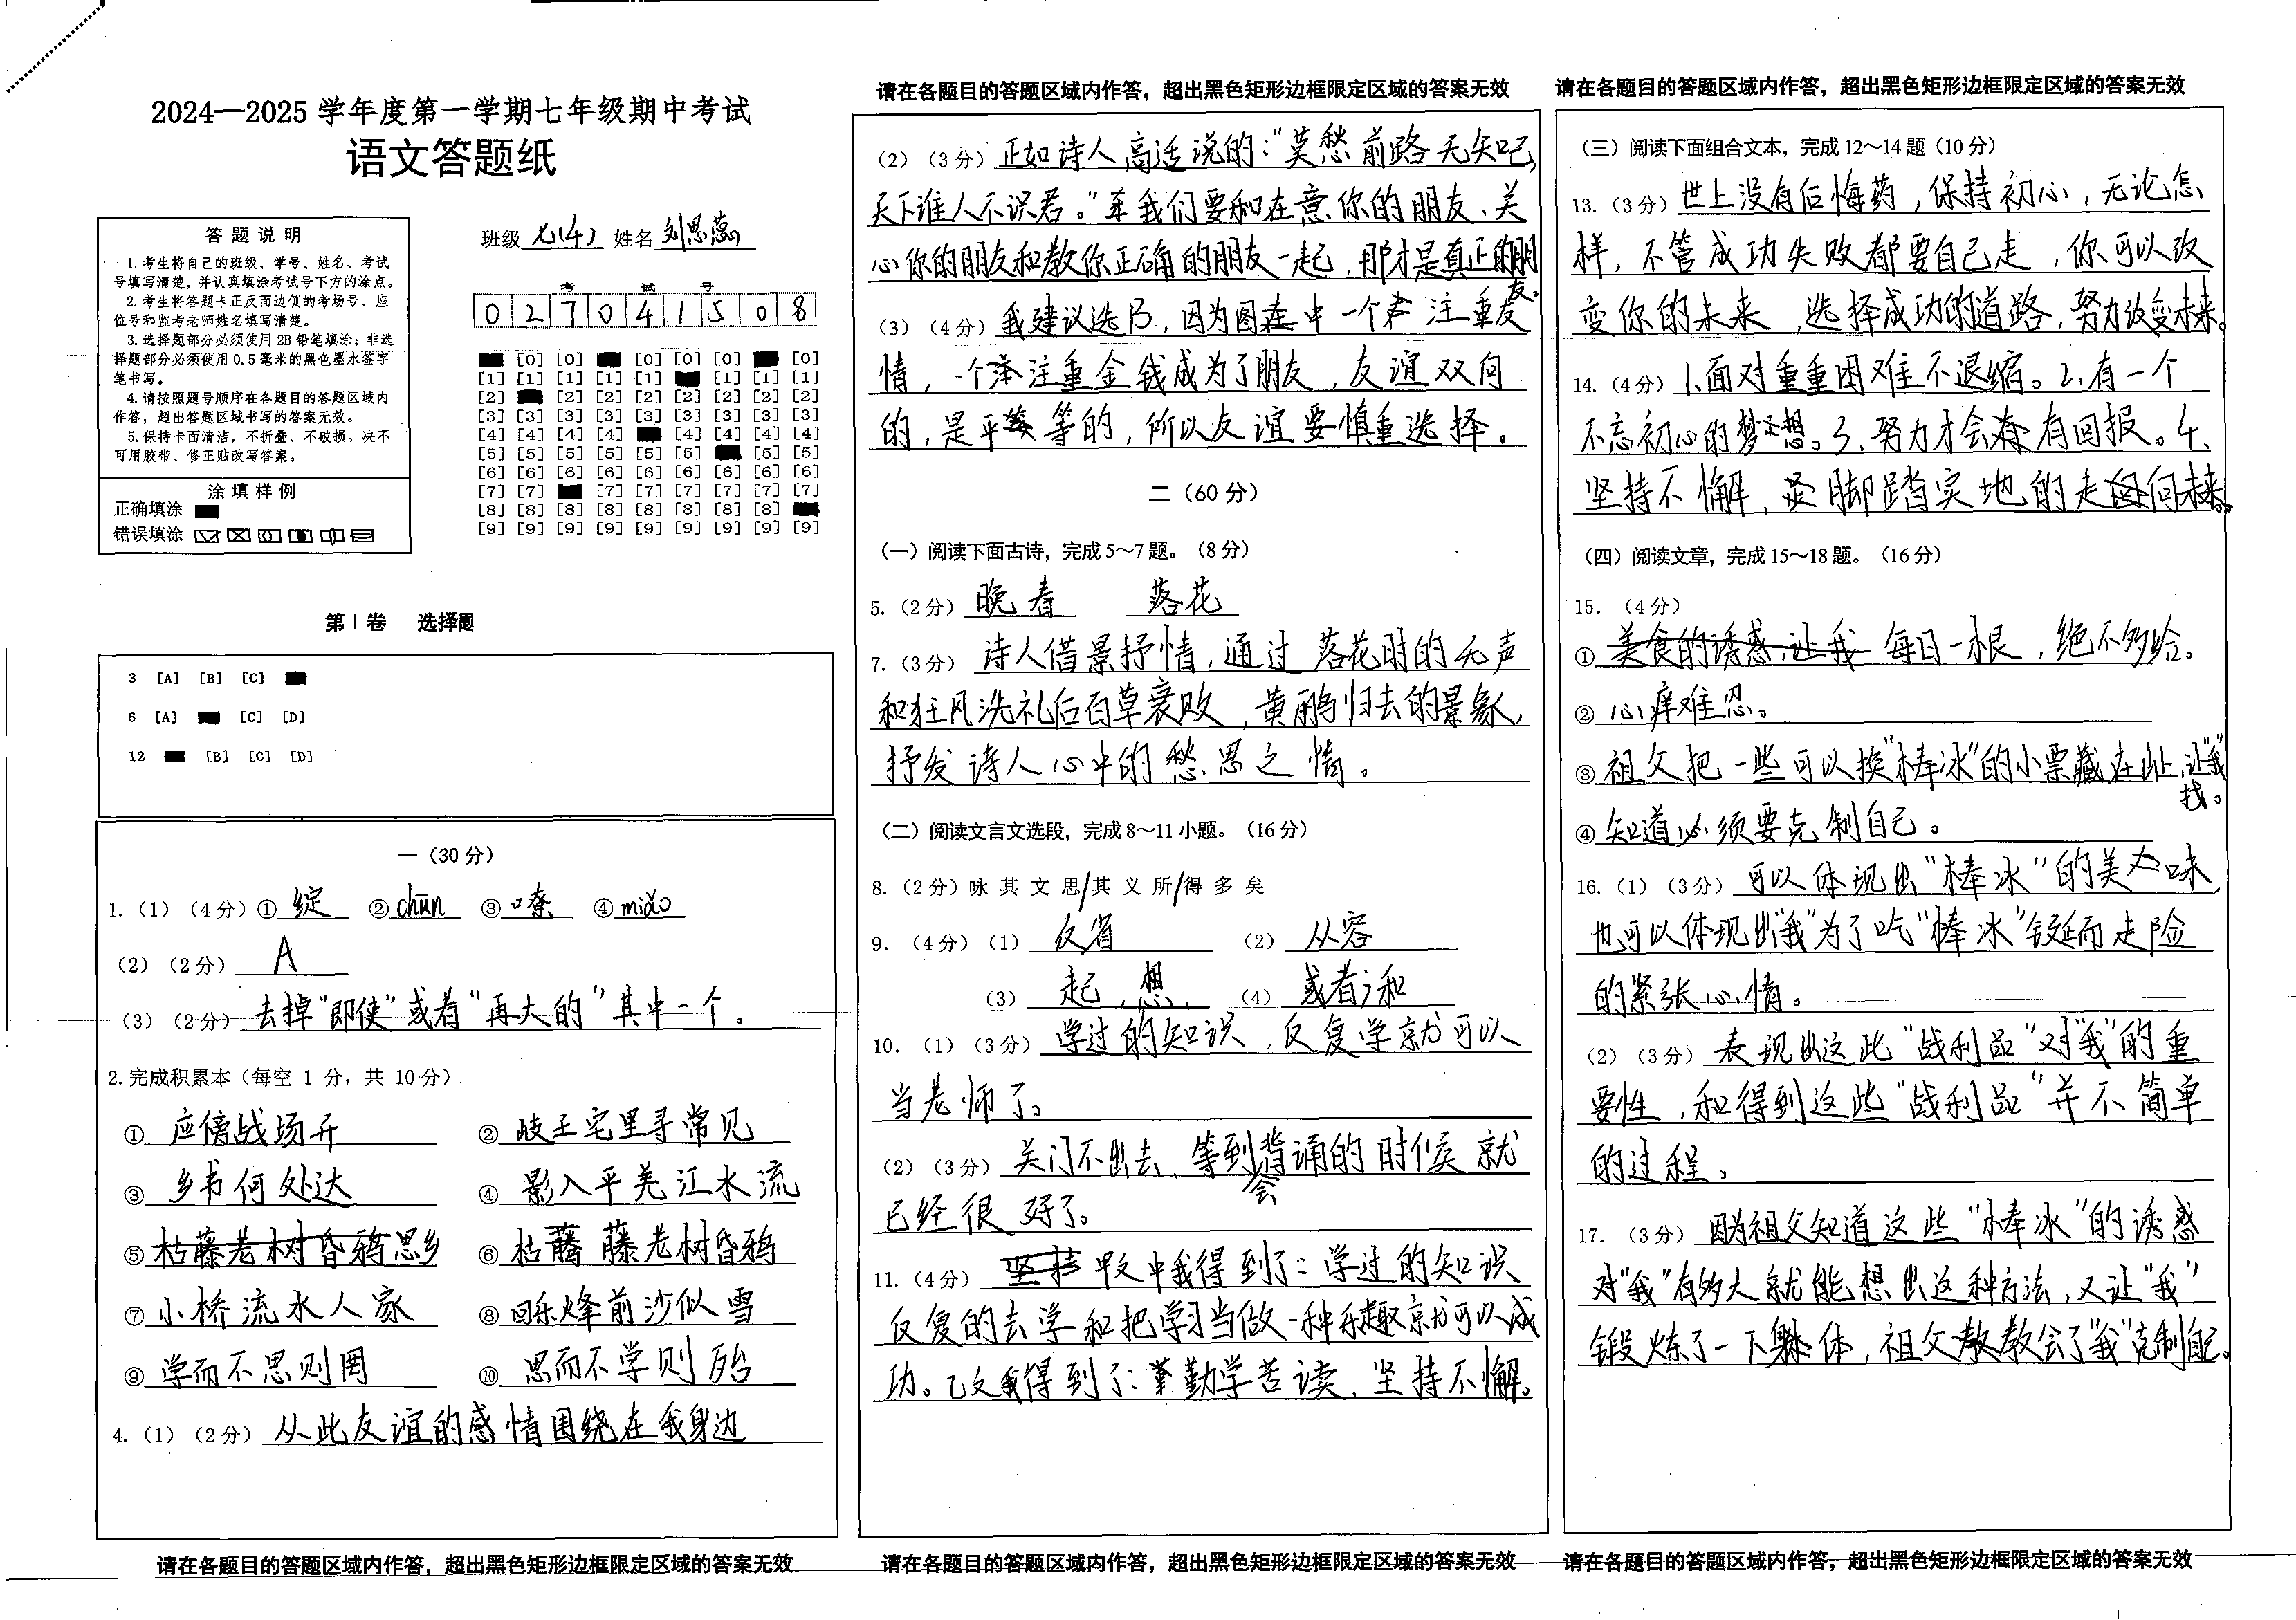 2024—2025 学年度第一学期七年级期中考试
语文答题纸
答 题 说 明
1.考生将自己的班级、学号、姓名、考试
号填写清楚，并认真填涂考试号下方的涂点。
2.考生将答题卡正反面边侧的考场号、座
位号和监考老师姓名填写清楚。
3.选择题部分必须使用 2B 铅笔填涂；非选
择题部分必须使用 0.5 毫米的黑色墨水签字
笔书写。
4.请按照题号顺序在各题目的答题区域内
作答，超出答题区域书写的答案无效。
5.保持卡面清洁，不折叠、不破损。决不
可用胶带、修正贴改写答案。
涂 填 样 例
正确填涂
错误填涂
班级 七(4) 姓名 刘思蕊
考 试 号
0 2 7 0 4 1 5 0 8
[0] [0] [0] [0] [0] [0]
[1] [1] [1] [1] [1] [1] [1] [1]
[2] [2] [2] [2] [2] [2] [2] [2]
[3] [3] [3] [3] [3] [3] [3] [3] [3]
[4] [4] [4] [4] [4] [4] [4] [4]
[5] [5] [5] [5] [5] [5] [5] [5]
[6] [6] [6] [6] [6] [6] [6] [6] [6]
[7] [7] [7] [7] [7] [7] [7] [7]
[8] [8] [8] [8] [8] [8] [8] [8]
[9] [9] [9] [9] [9] [9] [9] [9] [9]
第 I 卷 选择题
3 [A] [B] [C]
6 [A] [C] [D]
12 [B] [C] [D]
一（30 分）
1.（1）（4分）① 绽 ② chūn ③ 嘹 ④ miǎo
（2）（2分） A
（3）（2分） 去掉“即使”或者“再大的”其中一个。
2.完成积累本（每空 1 分，共 10 分）
① 应傍战场开 ② 歧王宅里寻常见
③ 乡书何处达 ④ 影入平羌江水流
⑤ 枯藤老树昏鸦 思乡 ⑥ 枯藤老树昏鸦
⑦ 小桥流水人家 ⑧ 回乐烽前沙似雪
⑨ 学而不思则罔 ⑩ 思而不学则殆
4.（1）（2分） 从此友谊的感情围绕在我身边
请在各题目的答题区域内作答，超出黑色矩形边框限定区域的答案无效
请在各题目的答题区域内作答，超出黑色矩形边框限定区域的答案无效
（2）（3分） 正如诗人高适说的：“莫愁前路无知己，
天下谁人不识君。”我们要和在意你的朋友、关
心你的朋友和教你正确的朋友一起，那才是真正的朋
友。
（3）（4分） 我建议选B，因为图中一个注重友
情，一个注重金钱成为了朋友，友谊双向
的，是平等的，所以友谊要慎重选择。
二（60 分）
（一）阅读下面古诗，完成 5～7 题。（8 分）
5.（2分） 晚春 落花
7.（3分） 诗人借景抒情，通过落花时的无声
和狂风洗礼后百草衰败，黄鹂归去的景象，
抒发诗人心中的愁思之情。
（二）阅读文言文选段，完成 8～11 小题。（16 分）
8.（2分）咏 其 文 思/其 义 所/得 多 矣
9.（4分）（1） 反省 （2） 从容
（3） 起，想 （4） 或者；和
10.（1）（3分） 学过的知识，反复学就可以
当老师了。
（2）（3分） 关门不出去，等到背诵的时候就
会
已经很好了。
11.（4分） 坚持 甲文中我得到了：学过的知识
反复的去学和把学习当做一种乐趣就可以成
功。乙文我得到了：勤学苦读，坚持不懈。
请在各题目的答题区域内作答，超出黑色矩形边框限定区域的答案无效
请在各题目的答题区域内作答，超出黑色矩形边框限定区域的答案无效
（三）阅读下面组合文本，完成 12～14 题（10 分）
13.（3分） 世上没有后悔药，保持初心，无论怎
样，不管成功失败都要自己走，你可以改
变你的未来，选择成功的道路，努力改变未来。
14.（4分） 1.面对重重困难不退缩。2.有一个
不忘初心的梦想。3、努力才会有回报。4、
坚持不懈，脚踏实地的走向未来。
（四）阅读文章，完成 15～18 题。（16 分）
15.（4分）
① 美食的诱惑，让我 每日一根，绝不多给。
② 心痒难忍。
③ 祖父把一些可以换“棒冰”的小票藏在此，让“我”
找。
④ 知道必须要克制自己。
16.（1）（3分） 可以体现出“棒冰”的美味，
也可以体现出“我”为了吃“棒冰”铤而走险
的紧张心情。
（2）（3分） 表现出这些“战利品”对“我”的重
要性，和得到这些“战利品”并不简单
的过程。
17.（3分） 因为祖父知道这些“棒冰”的诱惑
对“我”有多大就能想出这种方法，又让“我”
锻炼了一下身体，祖父教会了“我”克制自己。
请在各题目的答题区域内作答，超出黑色矩形边框限定区域的答案无效